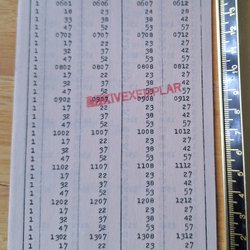 1 0601 0606 0607 0612
1 18 23 24 28
1 33 38 38 42
1 47 52 53 57
1 0702 0707 0708 0712
1 17 22 23 27
1 32 37 38 42
1 47 52 53 57
1 0802 0807 0808 0812
1 17 22 23 27
1 32 37 38 42
1 47 52 53 57
1 0902 0907 0908 0912
1 17 22 23 27
1 32 37 38 42
1 47 52 53 57
1 1002 1007 1008 1012
1 17 22 23 27
1 32 37 38 42
1 47 52 53 57
1 1102 1107 1108 1112
1 17 22 23 27
1 32 37 38 42
1 47 52 53 57
1 1202 1207 1208 1212
1 17 22 23 27
1 32 37 38 42
1 47 52 53 57
1 1302 1307 1308 1312
1 17 22 23 27